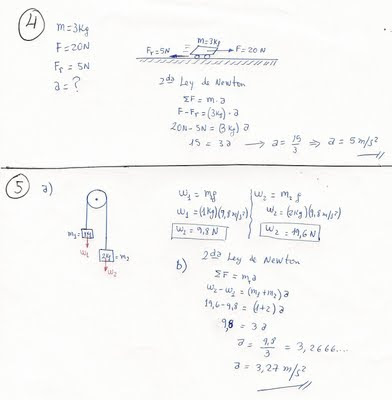 4
m=3Kg
F=20N
Fr=5N
a=?
m=3Kg
Fr=5N
F=20N
2da Ley de Newton
ΣF = m·a
F-Fr=(3Kg)·a
20N-5N=(3Kg)a
15 = 3a → a = 15/3 ⇒ a = 5 m/s²
5 a)
m1=
1Kg
W1
2Kg
=m2
W2
W1 = m1g
W1=(1Kg)(9,8m/s²)
W2=9,8N
W2=m2g
W2=(2Kg)(9,8m/s²)
W2=19,6N
b) 2da Ley de Newton
ΣF = m·a
W2-W1=(m1+m2)a
19,6-9,8=(1+2)a
9,8 = 3a
a = 9,8/3 = 3,2666....
a = 3,27 m/s²